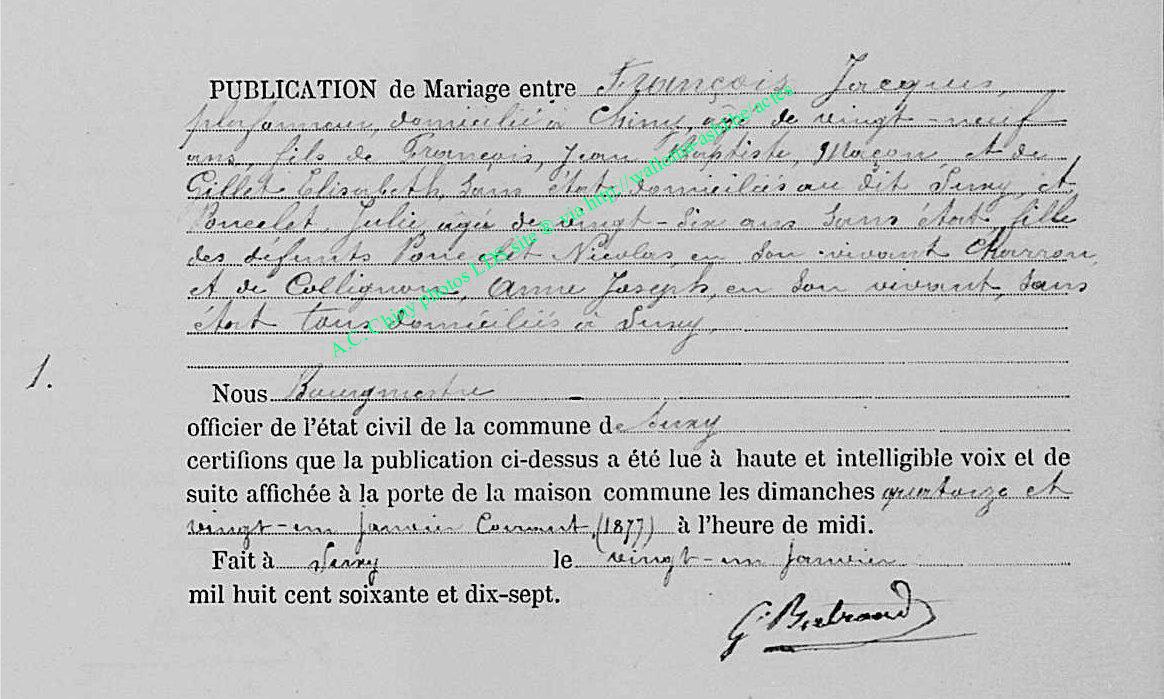 PUBLICATION de Mariage entre François Jacques,
plafonneur, domicilié à Chiny, âgé de vingt-neuf
ans, fils de François, Jean Baptiste, Maçon, et de
Gillet Elisabeth, sans état, domiciliés au dit Suxy, et
Poncelet, Julie, âgée de vingt-six ans sans état, fille
des défunts Poncelet Nicolas, en son vivant Charron,
et de Collignon, Anne Joseph, en son vivant, sans
état tous domiciliés à Suxy,
1.
Nous Bourgmestre
officier de l'état civil de la commune de Suxy
certifions que la publication ci-dessus a été lue à haute et intelligible voix et de
suite affichée à la porte de la maison commune les dimanches quatorze et
vingt-un janvier Courant, (1877) à l'heure de midi.
Fait à Suxy le vingt-un janvier
mil huit cent soixante et dix-sept.
A.C. Chiny photos LDS site ® via http://wallonia-asbl.be/actes